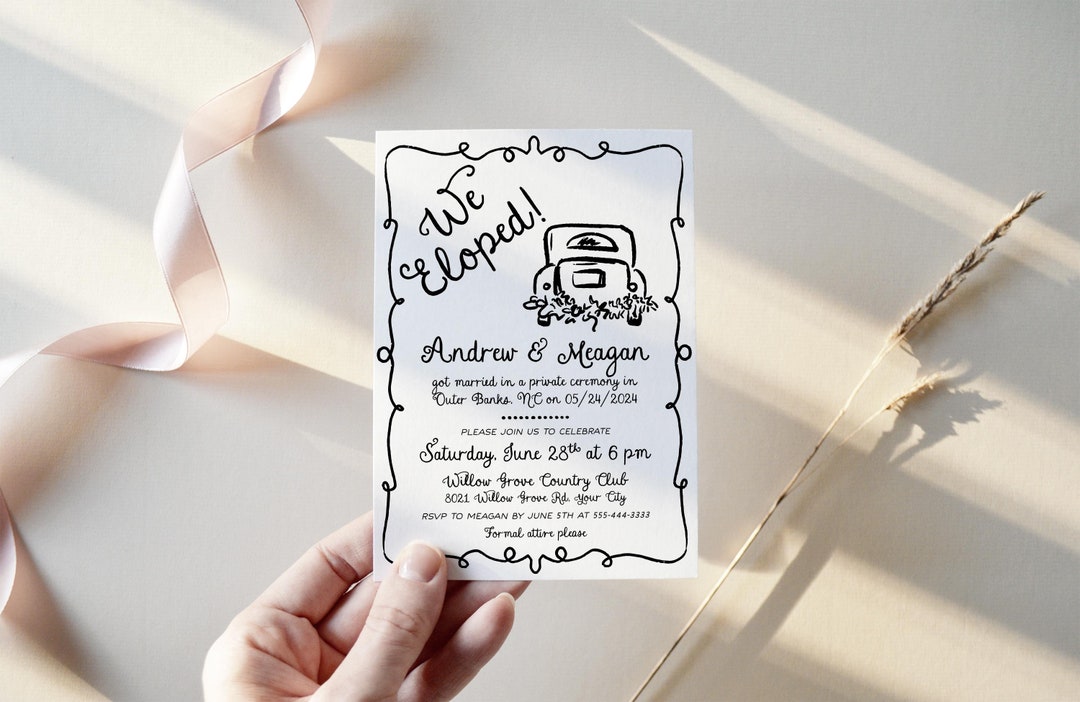 We
Eloped!
Andrew & Meagan
got married in a private ceremony in
Outer Banks, NC on 05/24/2024
PLEASE JOIN US TO CELEBRATE
Saturday, June 28th at 6 pm
Willow Grove Country Club
8021 Willow Grove Rd. Your City
RSVP TO MEAGAN BY JUNE 5TH AT 555-444-3333
Formal attire please